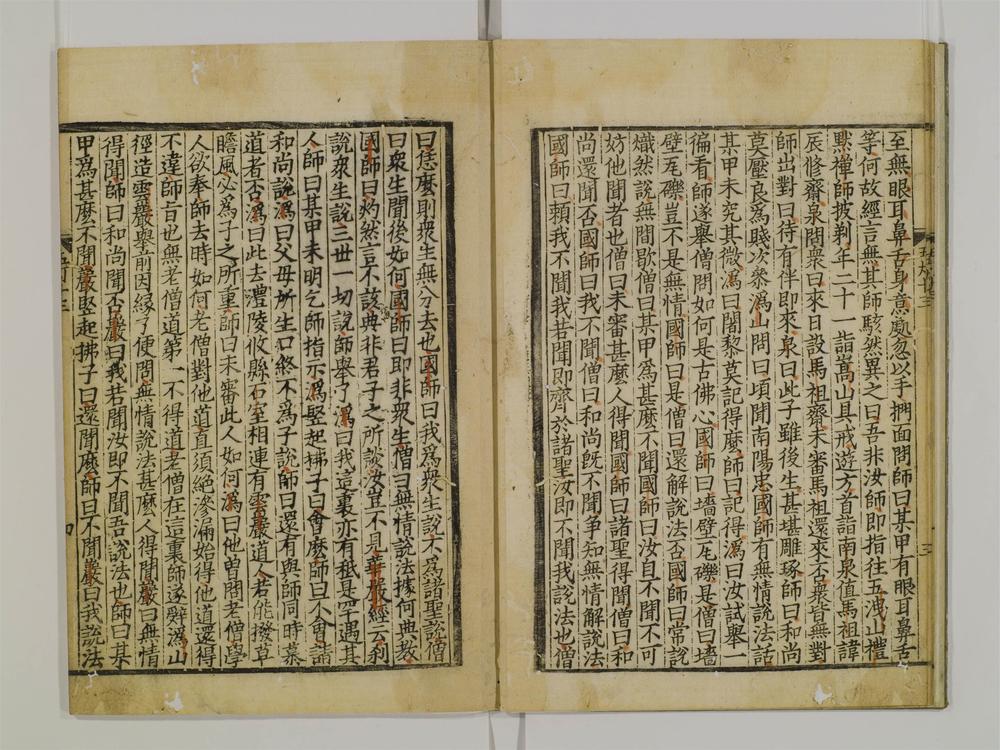 至無眼耳鼻舌身意處忽以手捫面問師曰某甲有眼耳鼻舌
等何故經言無其師駭然異之曰吾非汝師即指往五洩山禮
黙禪師披剃年二十一詣嵩山具戒遊方首詣南泉值馬祖諱
辰修齋泉問衆曰來日設馬祖齋未審馬祖還來否衆皆無對
師出對曰待有伴即來泉曰此子雖後生甚堪雕琢師曰和尚
莫壓良爲賤次參溈山問曰頃聞南陽忠國師有無情說法話
某甲未究其微溈曰闍黎莫記得麼師曰記得溈曰汝試舉一
徧看師遂舉僧問如何是古佛心國師曰墻壁瓦礫是僧曰墻
壁瓦礫豈不是無情國師曰是僧曰還解說法否國師曰常說
熾然說無間歇僧曰某甲爲甚麼不聞國師曰汝自不聞不可
妨他聞者也僧曰未審甚麼人得聞國師曰諸聖得聞僧曰和
尚還聞否國師曰我不聞僧曰和尚旣不聞爭知無情解說法
國師曰頼我不聞我若聞即齊於諸聖汝即不聞我說法也僧
曰恁麼則衆生無分去也國師曰我爲衆生說不爲諸聖說僧
曰衆生聞後如何國師曰即非衆生僧曰無情說法據何典教
國師曰灼然言不該典非君子之所談汝豈不見華嚴經云刹
說衆生說三世一切說師舉了溈曰我這裏亦有秪是罕遇其
人師曰某甲未明乞師指示溈竪起拂子曰會麼師曰不會請
和尚說溈曰父母所生口終不爲子說師曰還有與師同時慕
道者否溈曰此去澧陵攸縣石室相連有雲巖道人若能撥草
瞻風必爲子之所重師曰未審此人如何溈曰他曽問老僧學
人欲奉師去時如何老僧對他道直須絕滲漏始得他道還得
不違師旨也無老僧道第一不得道老僧在這裏師遂辭溈山
徑造雲巖舉前因縁了便問無情說法甚麼人得聞巖曰無情
得聞師曰和尚聞否巖曰我若聞汝即不聞吾說法也師曰某
甲爲甚麼不聞巖竪起拂子曰還聞麼師曰不聞巖曰我說法